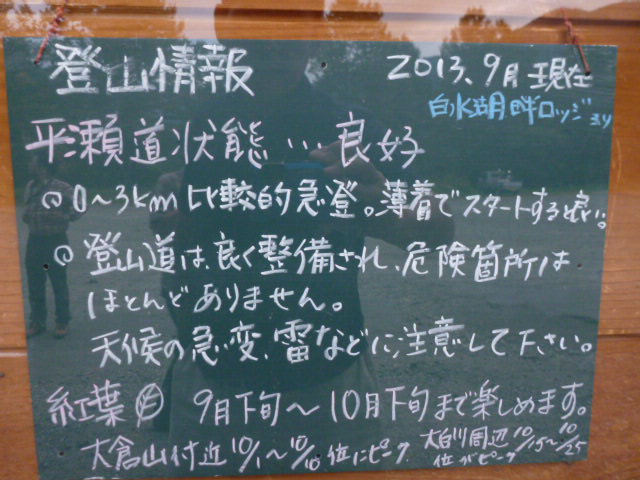 登山情報 2013.9月 現在
白水湖畔ロッジより
平瀬道状態…良好
0~3km 比較的急登。薄着でスタートすると良い。
登山道は良く整備され、危険箇所は
ほとんどありません。
天候の急変、雷などに注意して下さい。
紅葉 9月下旬~10月下旬まで楽しめます。
大倉山付近 10/1~10/10 位にピーク 大白川周辺 10/15~10/25
位がピーク